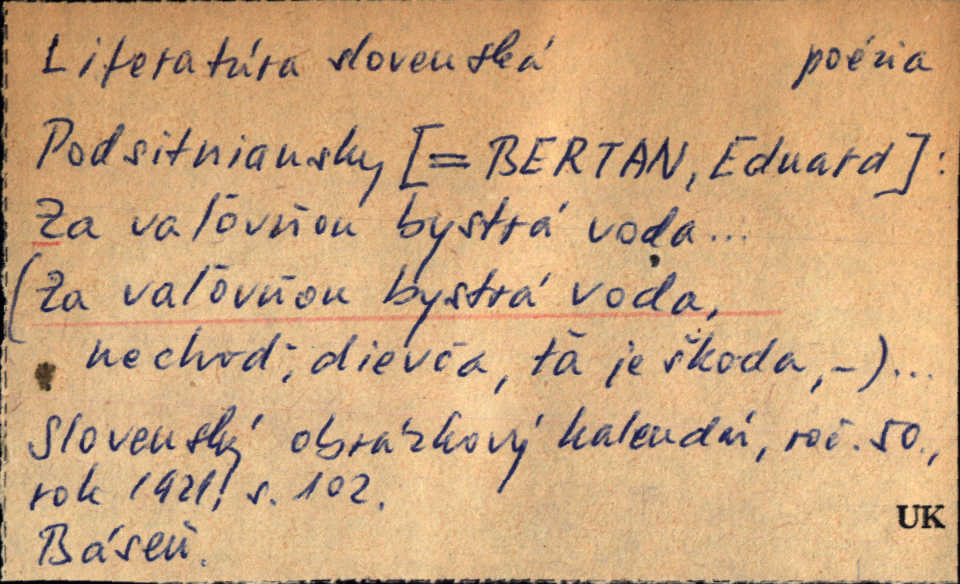 Literatúra slovenská poézia
Podsitniansky [= BERTAN, Eduard]:
Za vaľovňou bystrá voda...
(Za vaľovňou bystrá voda,
nechoď, dievča, ťa je škoda, –)...
Slovenský obrázkový kalendár, roč. 50.,
rok 1921, s. 102.
UK
Báseň.